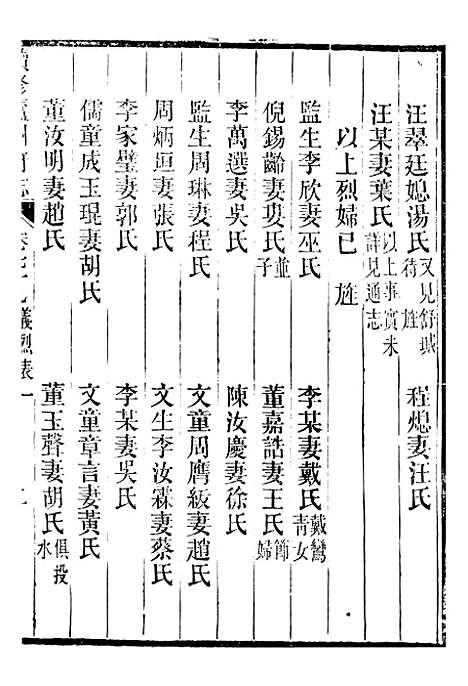 汪翠廷媳湯氏 又見舒城待旌 程熄妻汪氏
汪某妻葉氏 以上事實未詳見通志
以上烈婦已旌
監生李欣妻巫氏 李某妻戴氏 戴鸞青女
倪錫齡妻男氏 並子 董嘉誥妻王氏 節婦
李萬選妻吳氏 陳汝慶妻徐氏
監生周琳妻程氏 文童周膺級妻趙氏
周炳垣妻張氏 文生李汝霖妻蔡氏
李家璧妻郭氏 李某妻吳氏
儒童成玉琨妻胡氏 文童章言妻黃氏
董汝明妻趙氏 董玉聲妻胡氏 俱投水
續修廬州府志 卷七十九 義烈表一